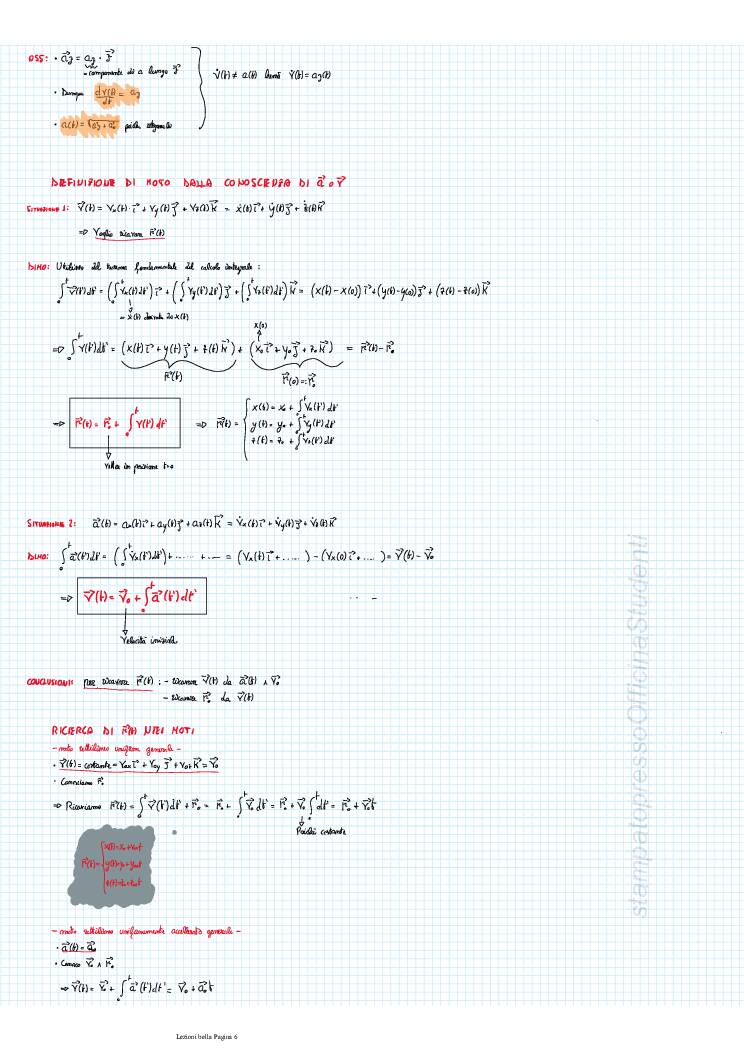 OSS: • a⃗ⱼ = aⱼ · j⃗
= componente di a lungo j⃗
v̇(t) ≠ a(t) bensì v̇(t) = aⱼ(t)
• Dunque dv(t)/dt = aⱼ
• a(t) =
DEFINIZIONE DI MOTO DALLA CONOSCENZA DI a⃗ o v⃗
SITUAZIONE 1: v⃗(t) = Vx(t)·i⃗ + Vy(t)j⃗ + Vz(t)k⃗ = ẋ(t)i⃗ + ẏ(t)j⃗ + ż(t)k⃗
⇒ Voglio ricavare r⃗(t)
DIMO: Utilizzo del teorema fondamentale del calcolo integrale:
∫₀ᵗ v⃗(t')dt' = (∫₀ᵗ Vx(t')dt')i⃗ + (∫₀ᵗ Vy(t')dt')j⃗ + (∫₀ᵗ Vz(t')dt')k⃗ = (x(t) - x(0))i⃗ + (y(t) - y(0))j⃗ + (z(t) - z(0))k⃗
= ẋ(t) derivata di x(t)
x(0)
⇒ ∫₀ᵗ v(t')dt' = (x(t)i⃗ + y(t)j⃗ + z(t)k⃗) + (x₀i⃗ + y₀j⃗ + z₀k⃗) = r⃗(t) - r⃗₀
r⃗(t)
r⃗(0) =: r⃗₀
⇒ r⃗(t) = r⃗₀ + ∫₀ᵗ v(t')dt' ⇒ r⃗(t) = { x(t) = x₀ + ∫₀ᵗ Vx(t')dt'
y(t) = y₀ + ∫₀ᵗ Vy(t')dt'
z(t) = z₀ + ∫₀ᵗ Vz(t')dt'
in posizione t=0
SITUAZIONE 2: a⃗(t) = ax(t)i⃗ + ay(t)j⃗ + az(t)k⃗ = V̇x(t)i⃗ + V̇y(t)j⃗ + V̇z(t)k⃗
DIMO: ∫₀ᵗ a⃗(t')dt' = (∫₀ᵗ V̇x(t')dt') + ...... + ... = (Vx(t)i⃗ + ......) - (Vx(0)i⃗ + ....) = v⃗(t) - v⃗₀
⇒ v⃗(t) = v⃗₀ + ∫₀ᵗ a⃗(t')dt'
Velocità iniziale
CONCLUSIONI: per ricavare r⃗(t): - ricavare v⃗(t) da a⃗(t) ∧ v⃗₀
- ricavare r⃗₀ da v⃗(t)
RICERCA DI r⃗(t) NEI MOTI
- moto rettilineo uniforme generale -
• v⃗(t) = costante = V₀x i⃗ + V₀y j⃗ + V₀z k⃗ = v⃗₀
• Conosciamo r⃗₀
⇒ Ricaviamo r⃗(t) = ∫₀ᵗ v⃗(t')dt' + r⃗₀ = r⃗₀ + ∫₀ᵗ v⃗₀ dt' = r⃗₀ + v⃗₀ ∫₀ᵗ dt' = r⃗₀ + v⃗₀t
Poiché costante
r⃗(t) = { x(t) = x₀ + v₀xt
y(t) = y₀ + v₀yt
z(t) = z₀ + v₀zt
- moto rettilineo uniformemente accelerato generale -
• a⃗(t) = a⃗₀
• Conosco v⃗₀ ∧ r⃗₀
⇒ v⃗(t) = v⃗₀ + ∫₀ᵗ a⃗(t')dt' = v⃗₀ + a⃗₀t
stampatopressoOfficinaStudenti
Lezioni bella Pagina 6